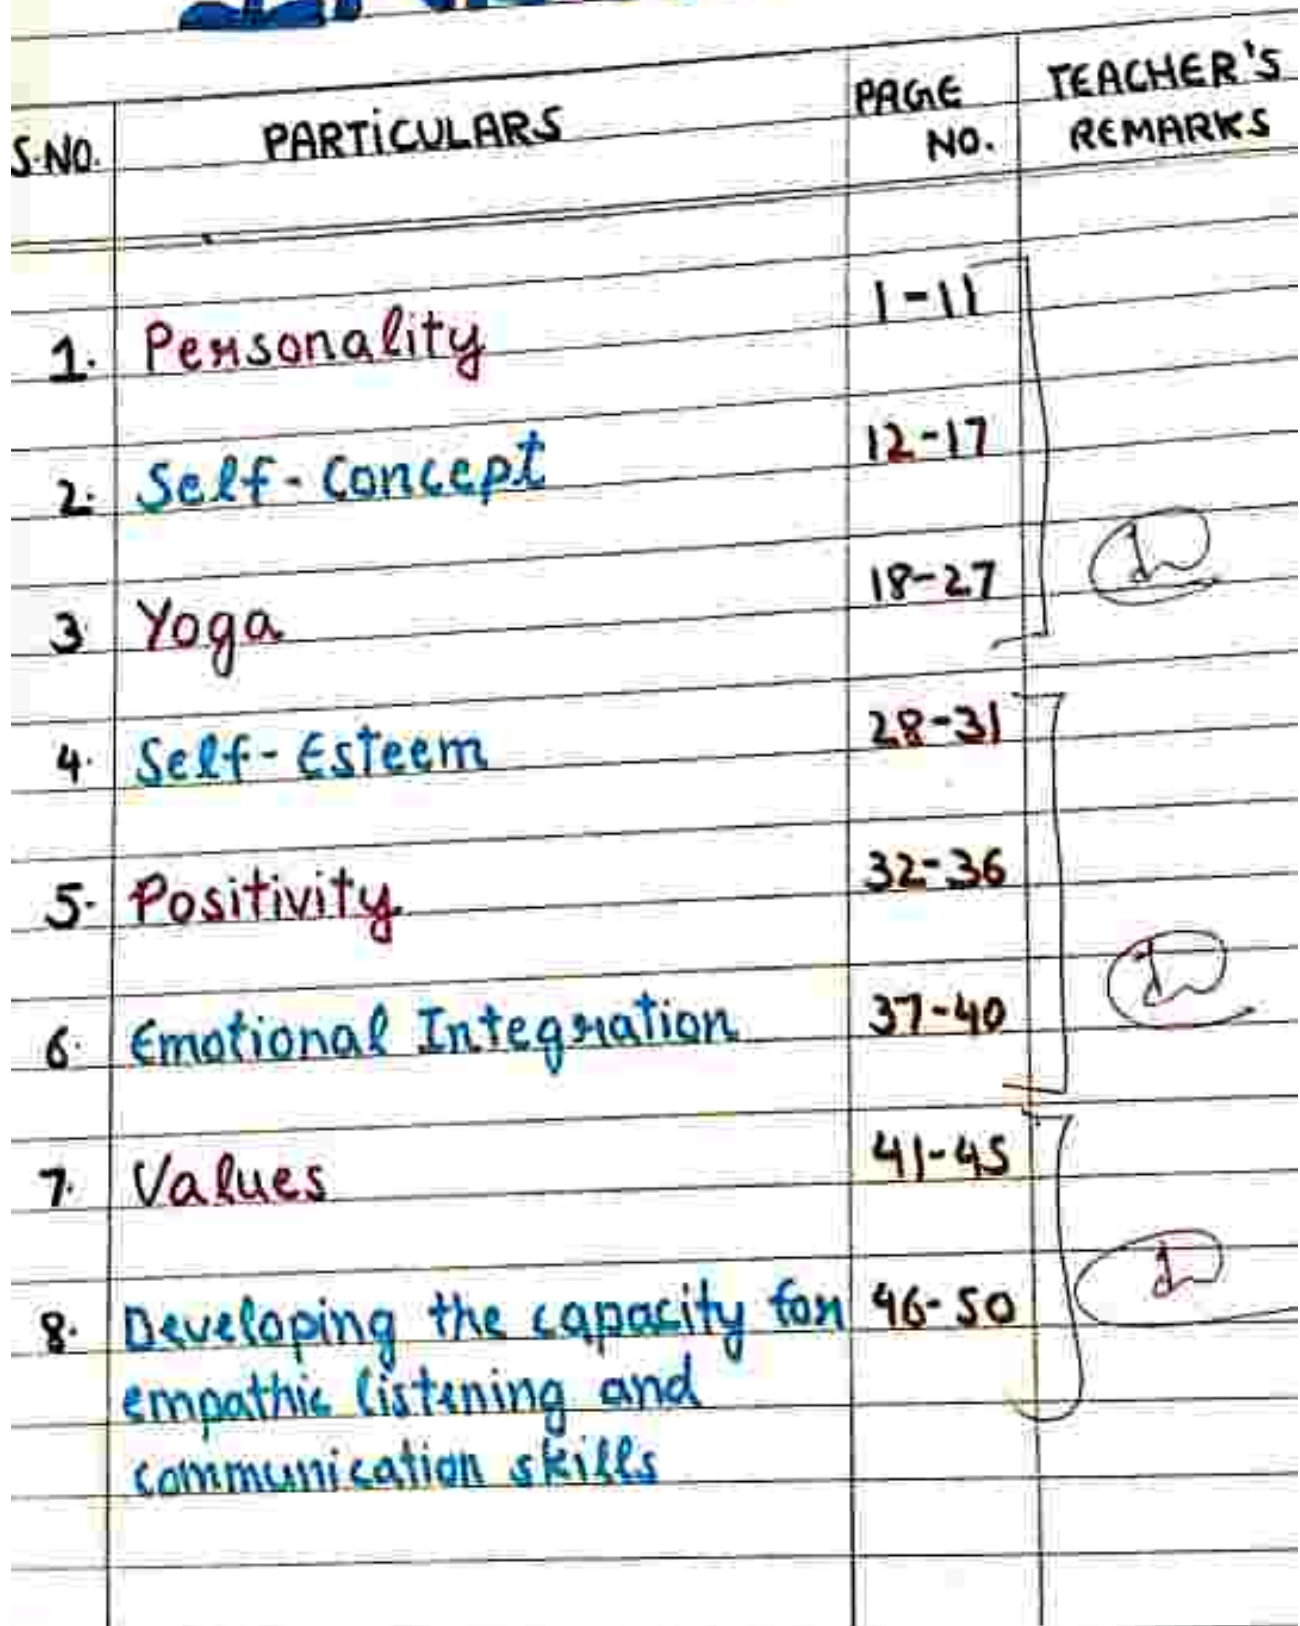 S.NO. PARTICULARS PAGE NO. TEACHER'S REMARKS
1. Personality 1-11
2. Self-Concept 12-17
3. Yoga 18-27
4. Self-Esteem 28-31
5. Positivity 32-36
6. Emotional Integration 37-40
7. Values 41-45
8. Developing the capacity for 46-50
empathic listening and
communication skills